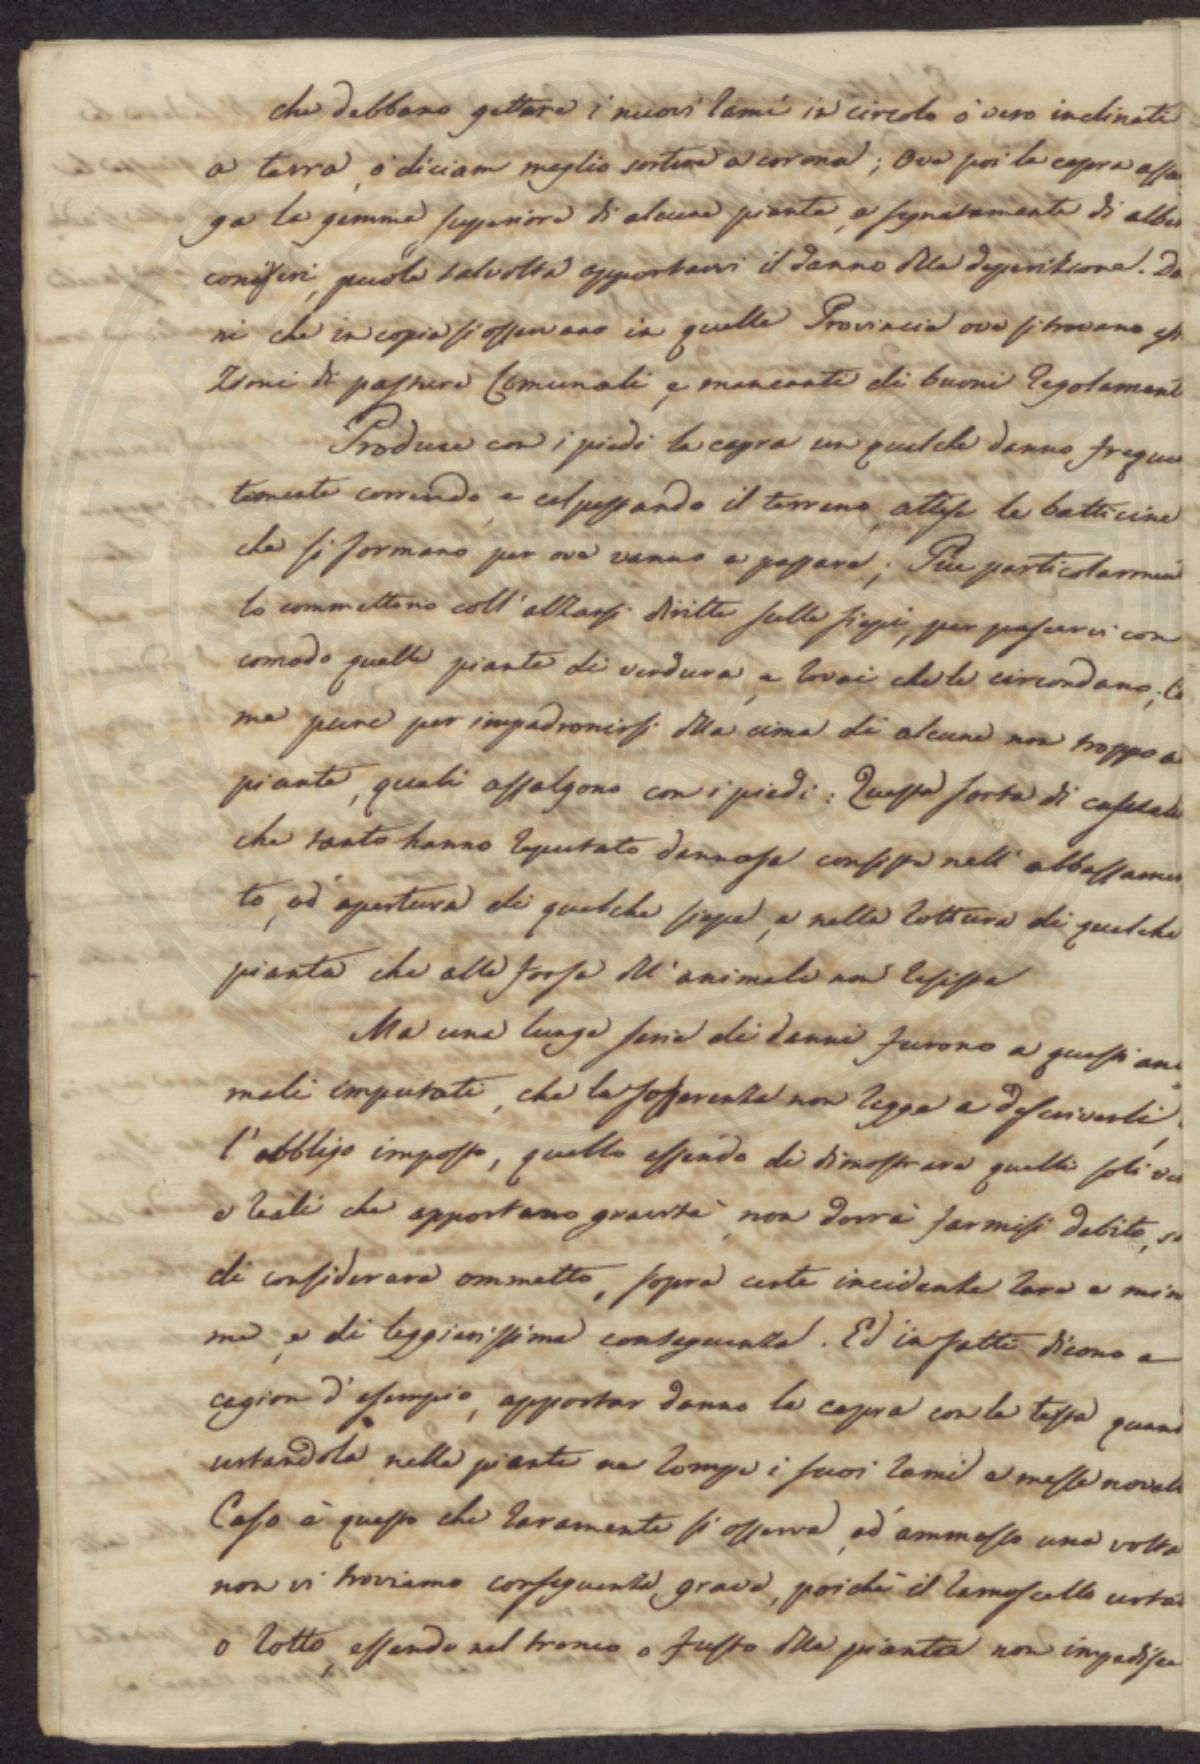 che debbano gettare i nuovi rami in circolo o vero inclinati
a terra, o diciam meglio sortire a corona; Ove poi la capra assa
ga la gemma superiore di alcune piante, e segnatamente di albe
coniferi, puole talvolta apportarvi il danno della deperizione. Da
ni che in copia si osservano in quelle Provincie ove si trovano
zioni di pasture Comunali, e mancanti di buoni regolament
Produce con i piedi la capra un qualche danno freque
temente correndo, e calpestando il terreno, attese le batticine
che si formano per ove vanno a passare; Più particolarmen
lo commettono coll' alzarsi diritte sulle siepi, per pascervi con
comodo quelle piante di verdura, e rovai che le circondano, co
me pure per impadronirsi della cima di alcune non troppo a
piante, quali assalgono con i piedi: Questa sorta di
che tanto hanno reputato dannosa consiste nell' abbassamen
to, ed apertura di qualche siepe, e nella rottura di qualche
pianta che alla forza dell' animale non resista
Ma una lunga serie di danni furono a questi ani
mali imputati, che la sofferenza non regge a descriverli,
l' obbligo imposto, quello essendo di dimostrare quelli soli ve
e reali che apportano gravità, non dovrà farmisi debito, se
di considerare ommetto, sopra certe incidenze rare e min
me, e di leggierissima conseguenza. Ed in fatti dicono a
cagion d' esempio, apportar danno la capra con la testa quand
urtandola nelle piante ne rompe i suoi rami e messe novelle
Caso è questo che raramente si osserva, ed ammesso una volta
non vi troviamo conseguenza grave, poichè il ramoscello urtat
o rotto, essendo nel tronco o fusto della pianta non impedisce